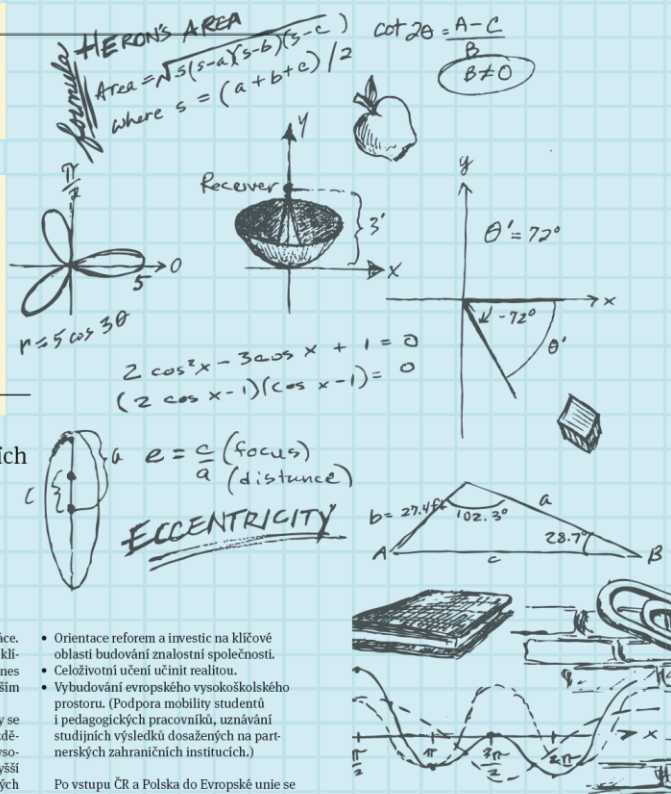 formula
HERON'S AREA
Area = √s(s-a)(s-b)(s-c)
where s = (a+b+c)/2
cot 2θ = A-C/B
B≠0
π/2
0
5
r = 5 cos 3θ
Receiver
y
3'
x
y
θ' = 72°
x
-72°
θ'
2 cos²x - 3cos x + 1 = 0
(2 cos x-1)(cos x-1) = 0
ích
a
c
e = c/a (focus)
(distance)
ECCENTRICITY
b = 27.4ft
102.3°
a
28.7°
A
c
B
áce.
klí-
nes
ším
y se
dě-
yso-
yšší
ých
• Orientace reforem a investic na klíčové
oblasti budování znalostní společnosti.
• Celoživotní učení učinit realitou.
• Vybudování evropského vysokoškolského
prostoru. (Podpora mobility studentů
i pedagogických pracovníků, uznávání
studijních výsledků dosažených na part-
nerských zahraničních institucích.)
Po vstupu ČR a Polska do Evropské unie se
π/2
π
3π/2
x